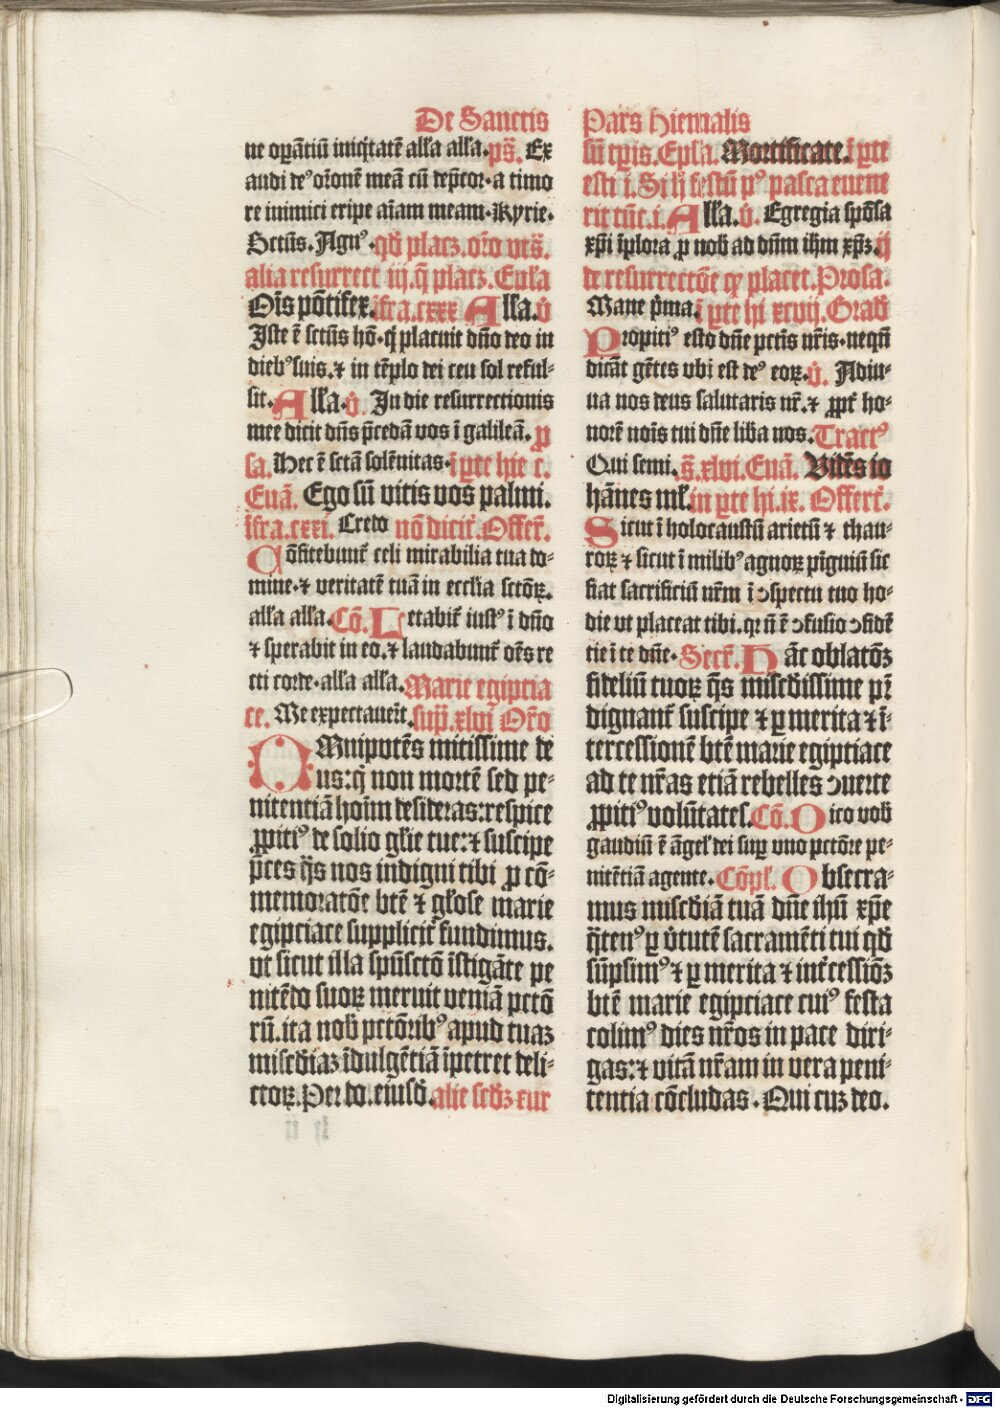 De Sanctis
ne oꝑātiū iniq̇tatē all'a all'a. pˢ. Ex
audi deꝰ or̄onē meā cū dep̄cor · a timo
re inimici eripe aīam meam · Kyrie.
Sctūs. Agnꝰ. qđ placz. or̄o vts̄.
alia resurrect iij. q̄ placz. Eu̅la
Oīs pōtifex. īfra. cxxx All'a. v̇
Iste ē sctūs hō. q̇ placuit dn̄o deo in
diebꝰ suis. ⁊ in tēplo dei ceu sol reful-
sit. All'a. v̇. In die resurrectionis
mee dicit dn̄s p̄cedā vos ī galileā. p
sa. Hec ē sctā solēnitas. ī ꝑte hie c.
Euā. Ego sū vitis vos palmi.
īfra. cxxi. Credo nō dicit̄. Offer̄.
Cōfitebunt̄ celi mirabilia tua do-
mine · ⁊ veritatē tuā in eccl'ia sctōꝝ.
all'a all'a. Cō. Letabit̄ iustꝰ ī dn̄o
⁊ sperabit in eo. ⁊ laudabunt̄ oēs re
cti corde · all'a all'a. Marie egiptia
ce. Me expectauer̄t. sup̄. xlvi Or̄o
OMnipotēs mitissime de
us: q̇ non mortē sed pe-
nitentiā hoīm desideras: respice
ꝓpitiꝰ de solio gl'ie tue: ⁊ suscipe
p̄ces q̄s nos indigni tibi ꝓ cō-
memoratōe btē ⁊ gl'ose marie
egiptiace supplicit̄ fundimus.
vt sicut illa spūsctō īstigāte pe
nitēdo suoꝝ meruit veniā pctō
rū. ita nob̄ pctōribꝰ apud tuaz
misc̄diaz īdulgētiā īpetret deli-
ctoꝝ. Per do. eiusd̄. alie scd̄z cur
Pars Hiemalis
sū tp̄is. Ep̄la. Mortificate. ī ꝑte
esti i. Si h̄ festū pꝰ pasca euene
rit tūc. i. All'a. v̇. Egregia spōsa
xp̄i īplora ꝓ nob̄ ad dn̄m ih̄m xp̄z. ij
de resurrectōe q̄ placet. Prosa.
Mane p̄ma. ī ꝑte hi xcvij. Grad̄
Propitiꝰ esto dn̄e pctīs nr̄is · neqn̄
dicāt gētes vbi est deꝰ eoꝝ. v̇. Adiu-
ua nos deus salutaris nr̄. ⁊ ꝓpt̄ ho-
norē noīs tui dn̄e lib̄a nos. Tractꝰ
Qui semi. s̄. xlvi. Euā. Vitēs io
hānes ml'. in ꝑte hi. ix. Offert̄.
Sicut ī holocaustū arietū ⁊ thau-
roꝝ ⁊ sicut ī milibꝰ agnoꝝ pīguiū sic
fiat sacrificiū nr̄m ī ꝯspectu tuo ho-
die vt placeat tibi. qꝛ nō ē ꝯfusio ꝯfidē
tie ī te dn̄e · Secr̄. Hāc oblatōz
fideliū tuoꝝ q̄s misc̄dissime pr̄
dignant̄ suscipe ⁊ ꝑ merita ⁊ ī-
tercessionē btē marie egiptiace
ad te nr̄as etiā rebelles ꝯuerte
ꝓpitiꝰ volūtates. Cō. Dico vob̄
gaudiū ē āgel' dei suꝑ vno pctōre pe-
nitētiā agente. Cōpl'. Obsecra-
mus misc̄diā tuā dn̄e ih̄u xp̄e
q̄tenꝰ ꝑ v̇tutē sacramēti tui qđ
sūpsimꝰ ⁊ ꝑ merita ⁊ int̄cessiōz
btē marie egiptiace cuiꝰ festa
colimꝰ dies nr̄os in pace diri-
gas: ⁊ vitā nr̄am in vera peni-
tentia cōcludas · Qui cuz deo.
Digitalisierung gefördert durch die Deutsche Forschungsgemeinschaft - DFG